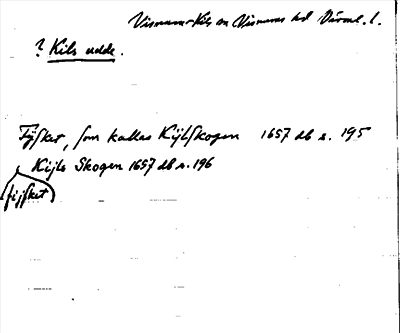 Visnums-Kils sn Visnums hd Värml. l.
? Kils udde.
Fijsket, som kallas Kijlskogen 1657 db s. 195
Kijls Skogen 1657 db s. 196
fijsket